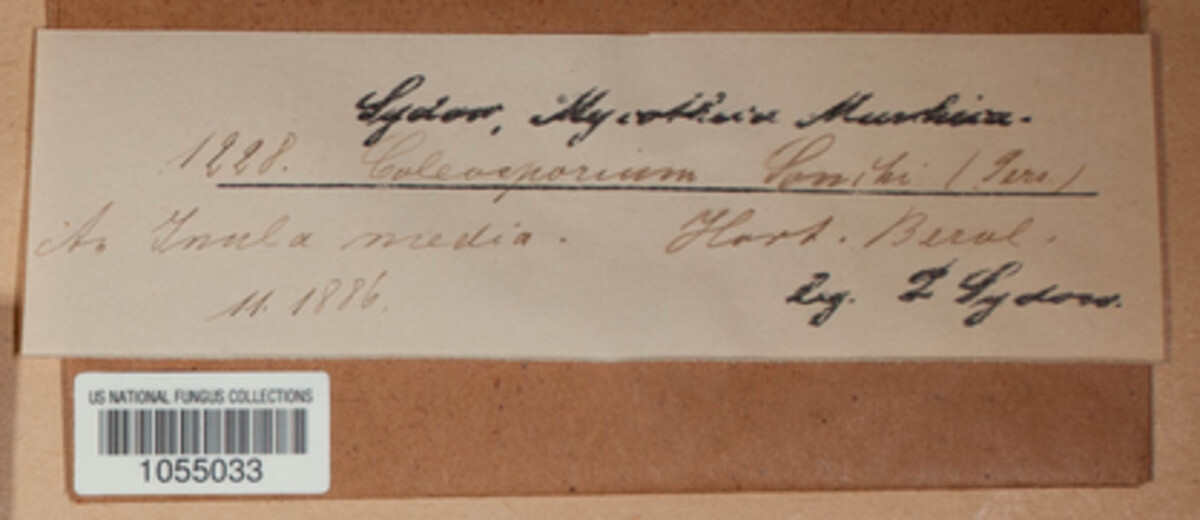 Sydow, Mycotheca Marchica.
1228. Coleosporium Sonchi (Pers.)
An Inula media. Hort. Berol.
11. 1886. Leg. P Sydow.
US NATIONAL FUNGUS COLLECTIONS
1055033